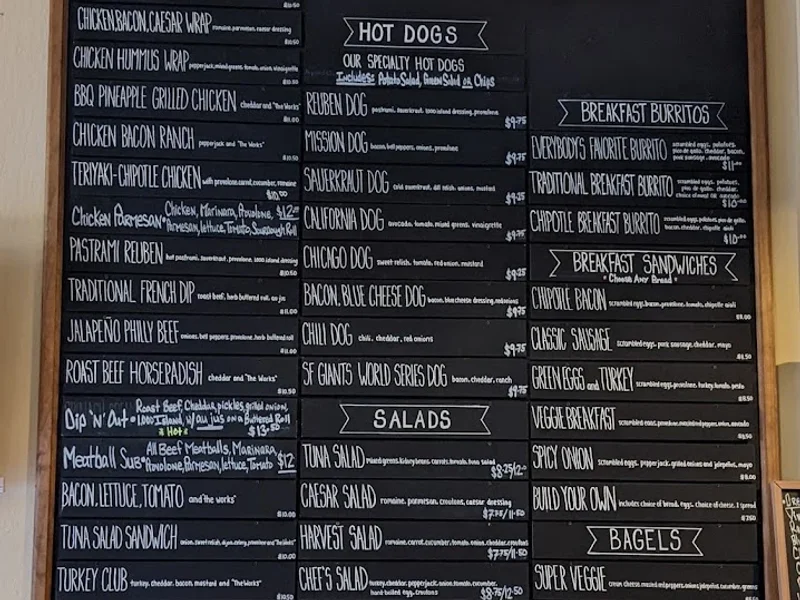 $10.50
CHICKEN, BACON, CAESAR WRAP romaine, parmesan, caesar dressing
$10.50
CHICKEN HUMMUS WRAP pepperjack, mixed greens, tomato, onion, vinaigrette
$10.50
BBQ PINEAPPLE GRILLED CHICKEN cheddar and "The Works"
$11.00
CHICKEN BACON RANCH pepperjack and "The Works"
$10.50
TERIYAKI-CHIPOTLE CHICKEN with provolone, carrot, cucumber, romaine
$10.50
Chicken Parmesan Chicken, Marinara, Provolone, $12
Parmesan, lettuce, Tomato, Sourdough Roll
PASTRAMI REUBEN hot pastrami, sauerkraut, provolone, 1000 island dressing
$10.50
TRADITIONAL FRENCH DIP roast beef, herb buttered roll, au jus
$11.00
JALAPEÑO PHILLY BEEF onions, bell peppers, provolone, herb buttered roll
$11.00
ROAST BEEF HORSERADISH cheddar and "The Works"
$10.50
Dip 'N' Out Roast Beef, Cheddar, pickles, grilled onion,
1,000 Island, w/ au jus on a Buttered Roll
* Hot * $13.50
Meatball Sub All Beef Meatballs, Marinara,
Provolone, Parmesan, lettuce, Tomato $12
BACON, LETTUCE, TOMATO and "the works"
$10.00
TUNA SALAD SANDWICH
$10.00
TURKEY CLUB turkey, cheddar, bacon, mustard and "The Works"
$10.50
HOT DOGS
OUR SPECIALTY HOT DOGS
Includes: Potato Salad, Green Salad or Chips
REUBEN DOG pastrami, sauerkraut, 1000 island dressing, provolone
$9.75
MISSION DOG bacon, bell peppers, onions, provolone
$9.75
SAUERKRAUT DOG sauerkraut, dill relish, onions, mustard
$9.25
CALIFORNIA DOG avocado, tomato, mixed greens, vinaigrette
$9.75
CHICAGO DOG sweet relish, tomato, red onion, mustard
$9.25
BACON, BLUE CHEESE DOG bacon, blue cheese dressing, red onions
$9.75
CHILI DOG chili, cheddar, red onions
$9.75
SF GIANTS WORLD SERIES DOG bacon, cheddar, ranch
$9.75
SALADS
TUNA SALAD mixed greens, kidney beans, carrots, tomato, tuna salad
$8.75/12.00
CAESAR SALAD romaine, parmesan, croutons, caesar dressing
$7.75/11.50
HARVEST SALAD romaine, carrot, cucumber, tomato, onion, cheddar, croutons
$7.75/11.50
CHEF'S SALAD turkey, cheddar, pepperjack, onion, tomato, cucumber,
hard boiled egg, croutons $8.75/12.50
BREAKFAST BURRITOS
EVERYBODY'S FAVORITE BURRITO scrambled eggs, potatoes,
pico de gallo, cheddar, bacon,
pork sausage, avocado $11.00
TRADITIONAL BREAKFAST BURRITO scrambled eggs, potatoes,
pico de gallo, cheddar,
choice of meat or avocado $10.00
CHIPOTLE BREAKFAST BURRITO scrambled eggs, potatoes, pico de gallo,
bacon, cheddar, chipotle aioli
$10.00
BREAKFAST SANDWICHES
* Choose Any Bread *
CHIPOTLE BACON scrambled eggs, bacon, provolone, tomato, chipotle aioli
$9.00
CLASSIC SAUSAGE scrambled eggs, pork sausage, cheddar, mayo
$8.50
GREEN EGGS and TURKEY scrambled eggs, provolone, turkey, tomato, pesto
$8.50
VEGGIE BREAKFAST
$8.50
SPICY ONION scrambled eggs, pepperjack, grilled onions and jalapeños, mayo
$8.00
BUILD YOUR OWN includes choice of bread, eggs, choice of cheese, 1 spread
$7.50
BAGELS
SUPER VEGGIE cream cheese, mixed red peppers, onions, jalapeños, cucumber, greens